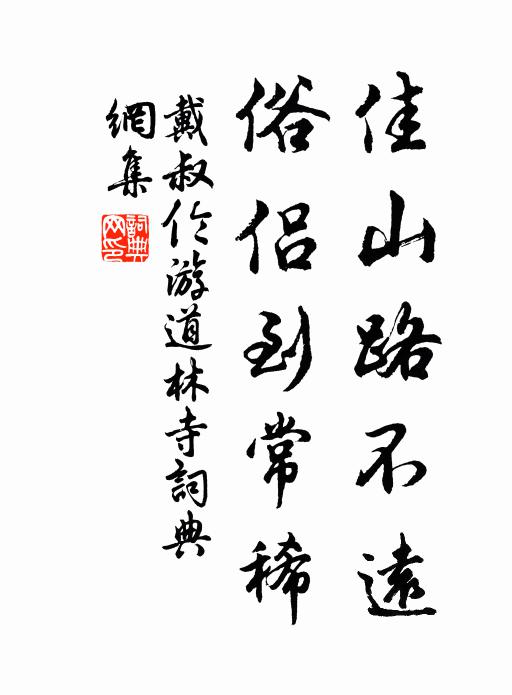 佳山路不遠
俗侶到常稀
戴叔伦游道林寺詞典
網集
詞典
网印